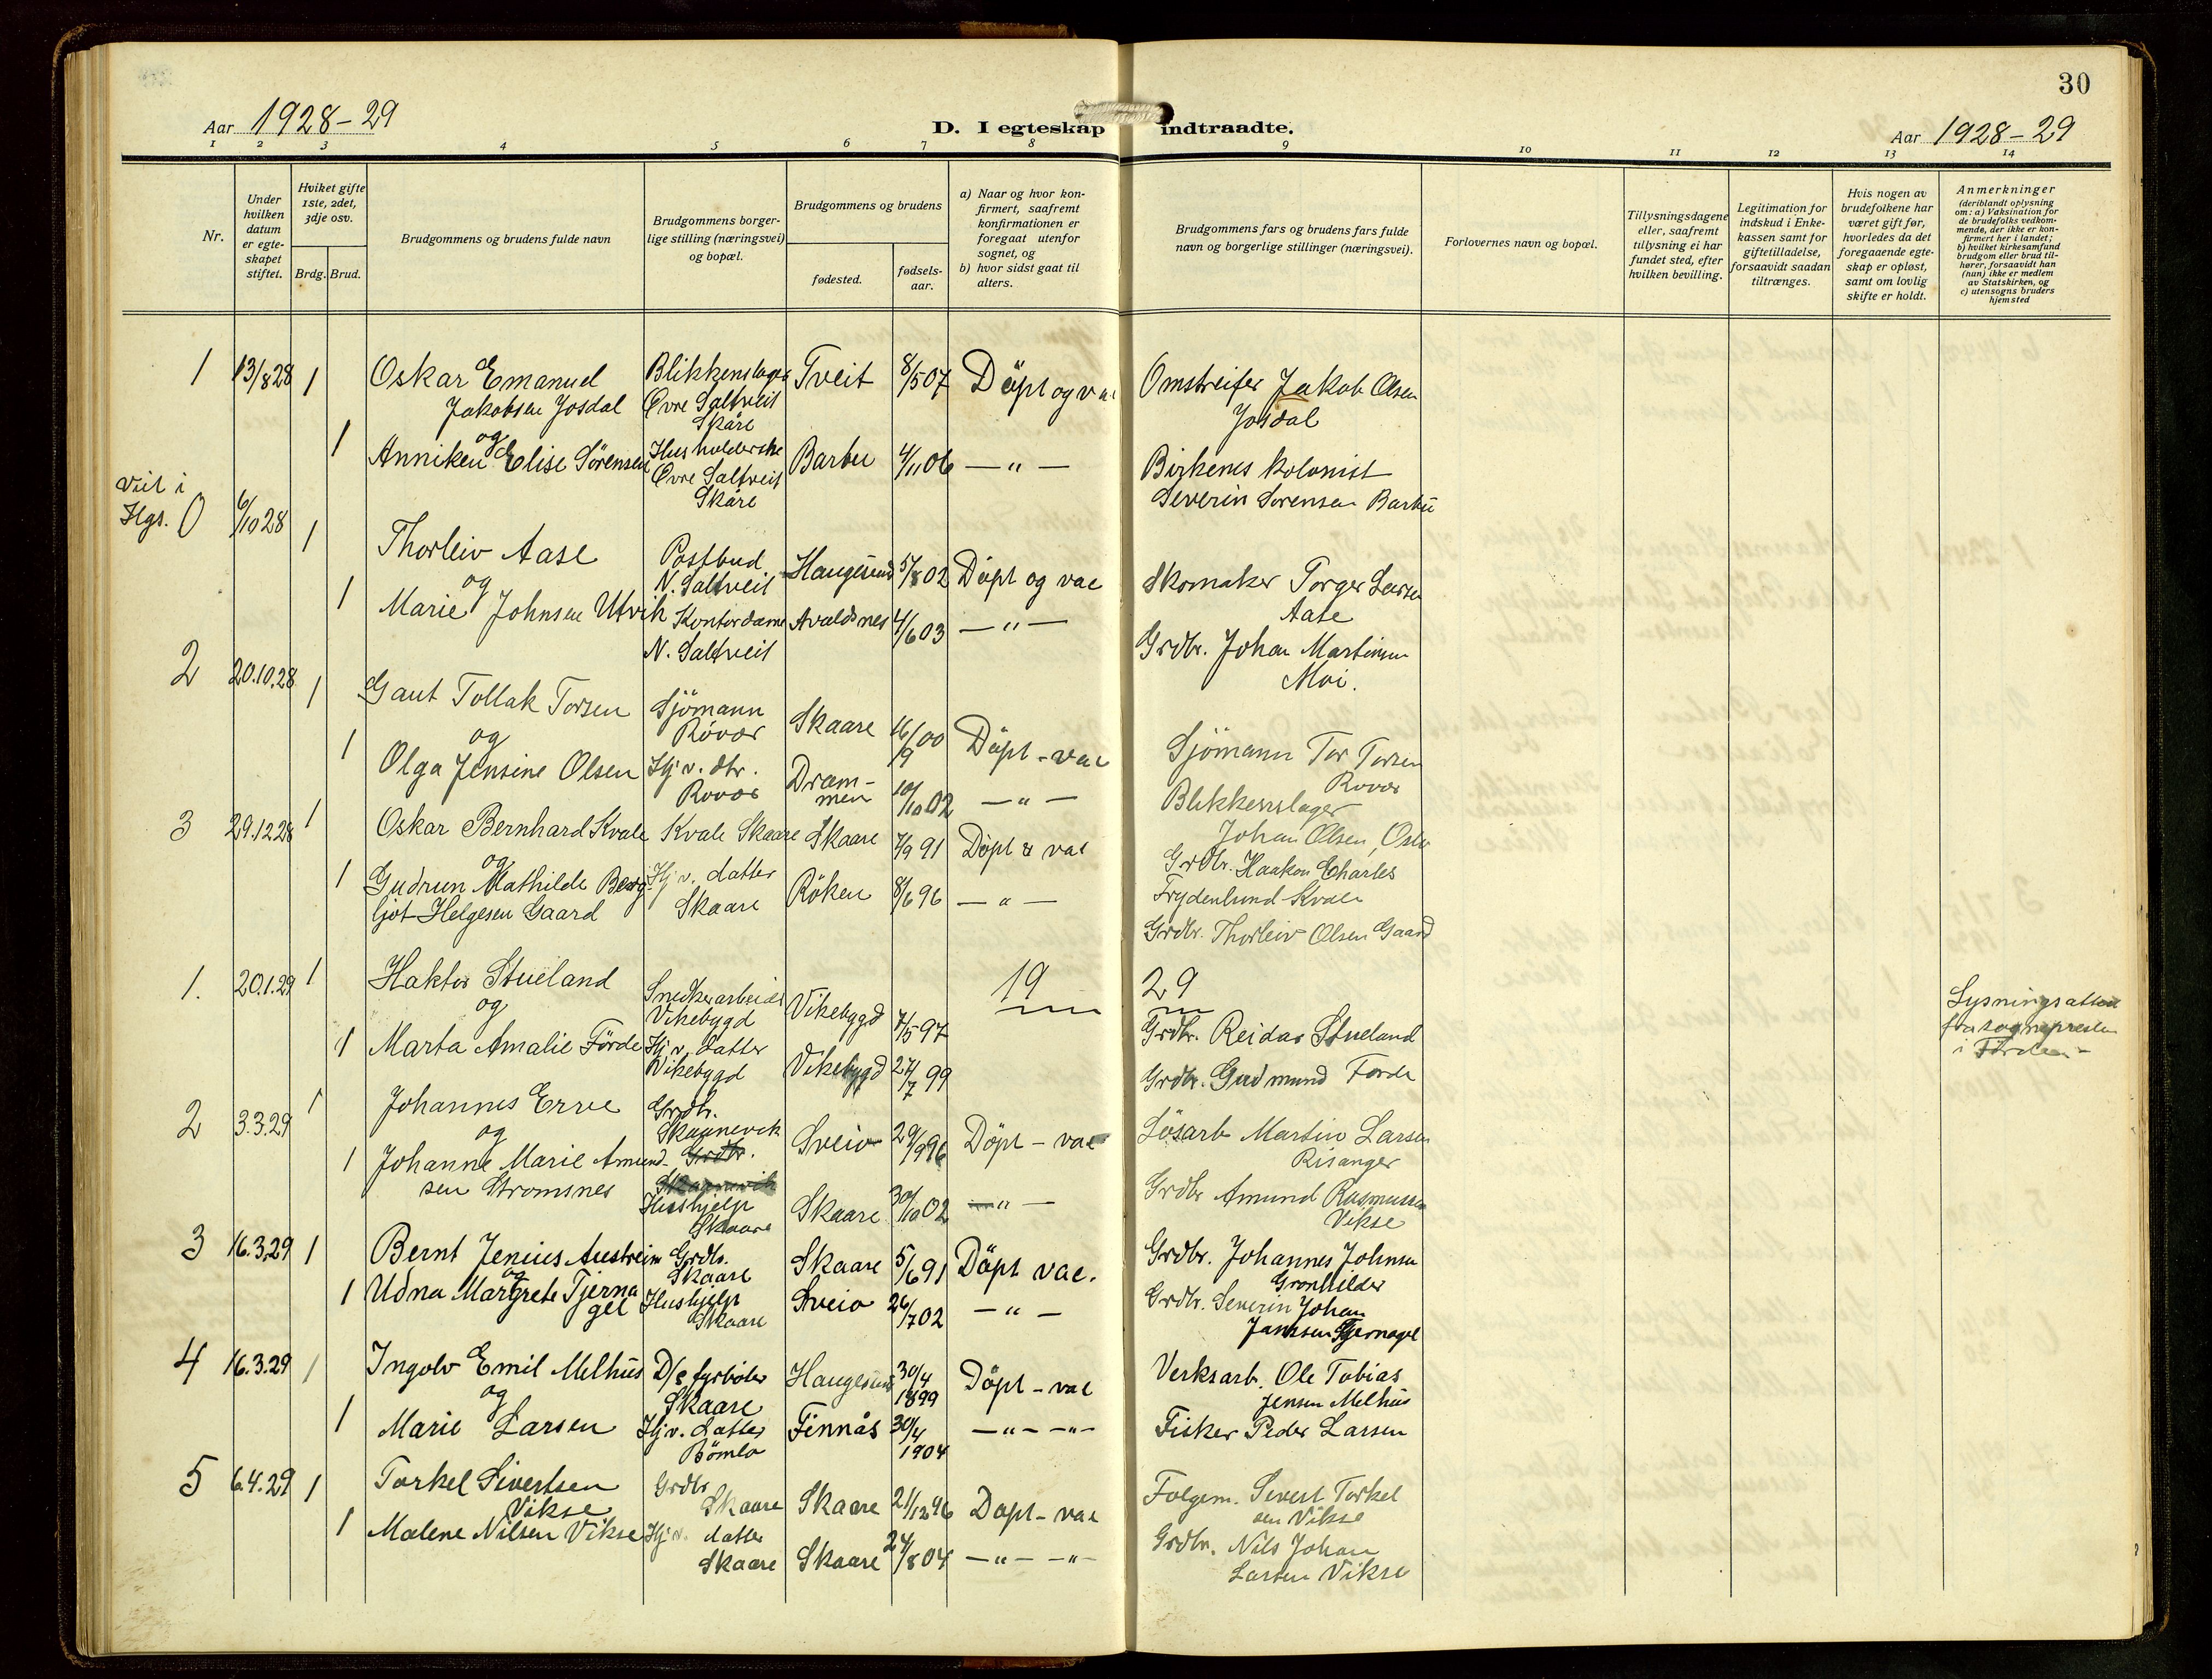 30
Aar 1928-29
D. I egteskap indtraadte.
Aar 1928-29
1 2 3 4 5 6 7 8 9 10 11 12 13 14
Nr.
Under hvilken datum er egteskapet stiftet.
Hviket gifte 1ste, 2det, 3dje osv.
Brdg. Brud.
Brudgommens og brudens fulde navn
Brudgommens borgerlige stilling (næringsvei) og bopæl.
Brudgommens og brudens
fødested.
fødselsaar.
a) Naar og hvor konfirmert, saafremt konfirmationen er foregaat utenfor sognet, og
b) hvor sidst gaat til alters.
Brudgommens fars og brudens fars fulde navn og borgerlige stillinger (næringsvei).
Forlovernes navn og bopæl.
Tillysningsdagene eller, saafremt tillysning ei har fundet sted, efter hvilken bevilling.
Legitimation for indskud i Enkekassen samt for giftetilladelse, forsaavidt saadan tiltrænges.
Hvis nogen av brudefolkene har været gift før, hvorledes da det foregaaende egteskap er opløst, samt om lovlig skifte er holdt.
Anmerkninger (deriblandt oplysning om: a) Vaksination for de brudefolks vedkommende, der ikke er konfirmert her i landet; b) hvilket kirkesamfund brudgom eller brud tilhører, forsaavidt han (hun) ikke er medlem av Statskirken, og c) utensogns bruders hjemsted
1 13/8 28 1 Oskar Emanuel Jakobsen Josdal Blikkenslager Øvre Saltveit Skåre Tveit 8/5 07 Döpt og vac Omstreifer Jakob Olsen Josdal
og
1 Anniken Elise Sørensen Husholderske Øvre Saltveit Skåre Barbu 4/11 06 — " — Birkenes kolonist Severin Sorensen Barbu
Viet i Hgs. 0 6/10 28 1 Thorleiv Aase Postbud N. Saltveit Haugesund 5/8 02 Döpt og vac Skomaker Torger Larsen Aase
og
1 Marie Johnsen Utvik Kontordame N. Saltveit Avaldsnes 4/6 03 — " — Grdbr. Johan Martinsen Moi.
2 20.10.28 1 Gaut Tollak Torsen Sjömann Rövær Skaare 16/9 00 Döpt - vac Sjömann Tor Torsen Rovær
og
1 Olga Jensine Olsen Hj v. dtr. Rovær Drammen 10/10 02 — " — Blikkenslager Johan Olsen, Oslo
3 29.12.28 1 Oskar Bernhard Kvale Kvale Skaare Skaare 7/9 91 Döpt & vac Grdbr. Haakon Charles Frydenlund Kvale
og
1 Gudrun Mathilde Bergljot Helgesen Gaard Hj v. datter Skaare Röken 8/6 96 — " — Grdbr. Thorleiv Olsen Gaard
19 29
1. 20.1.29 1 Haktor Stueland Snedkerarbeider Vikebygd Vikebygd 7/5 97 Grdbr. Reidar Stueland Lysningsattest fra sognepresten i Förde
og
1 Marta Amalie Förde Hj v. datter Vikebygd Vikebygd 27/7 99 Grdbr. Gudmund Forde
2 3.3.29 1 Johannes Erve Grdbr. Skaanevik Sveio 29/9 96 Döpt - vac Lösarb Martin Larsen Risanger
og
1 Johanne Marie Amundsen Stromsnes Grdbr. Skaanevik Hushjelp Skaare Skaare 30/10 02 — " — Grdbr Amund Rasmussen Vikse
3 16.3.29 1 Bernt Jenius Austreim Grdbr. Skaare Skaare 5/6 91 Döpt vac. Grdbr. Johannes Johnsen Gronhilder
og
1 Udna Margrete Tjernagel Hushjelp Skaare Sveio 26/7 02 — " — Grdbr. Severin Johan Jansen Tjernagel
4 16.3.29 1 Ingolv Emil Melhus D/s fyrböter Skaare Haugesund 30/4 1899 Döpt - vac Verksarb. Ole Tobias Jensen Melhus
og
1 Marie Larsen Hj v. datter Bömlo Finnås 30/4 1904 — " — — " — Fisker Peder Larsen
5 6.4.29 1 Torkel Sivertsen Vikse Grdbr Skaare Skaare 21/12 96 Dopt - vac Folgem. Sivert Torkelsen Vikse
1 Malene Nilsen Vikse Hj v. datter Skaare Skaare 24/8 04 — " — — " — Grdbr. Nils Johan Larsen Vikse